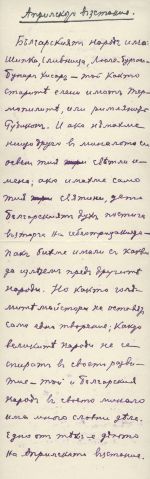 Априлското въстание.
Българският народ има:
Шипка, Сливница, Люле-Бургас,
Булаир, – той както
старите елини имат Тер-
мопилите, или римляните
Рубикон. И ако нямахме
нищо друго в миналото си
освен тия светли и-
мена, ако имахме само
тия светини, дето
българският дух постига
върха на себеотрицанието –
пак бихме имали с какво
да излезем пред другите
народи. Но както голе-
мите майстори не оставят
само едно творение, както
великите народи не се
спират в своето разви-
тие – той и българския
народ в своето минало
има много славни дела.
Едно от тях е делото
на Априлското въстание.